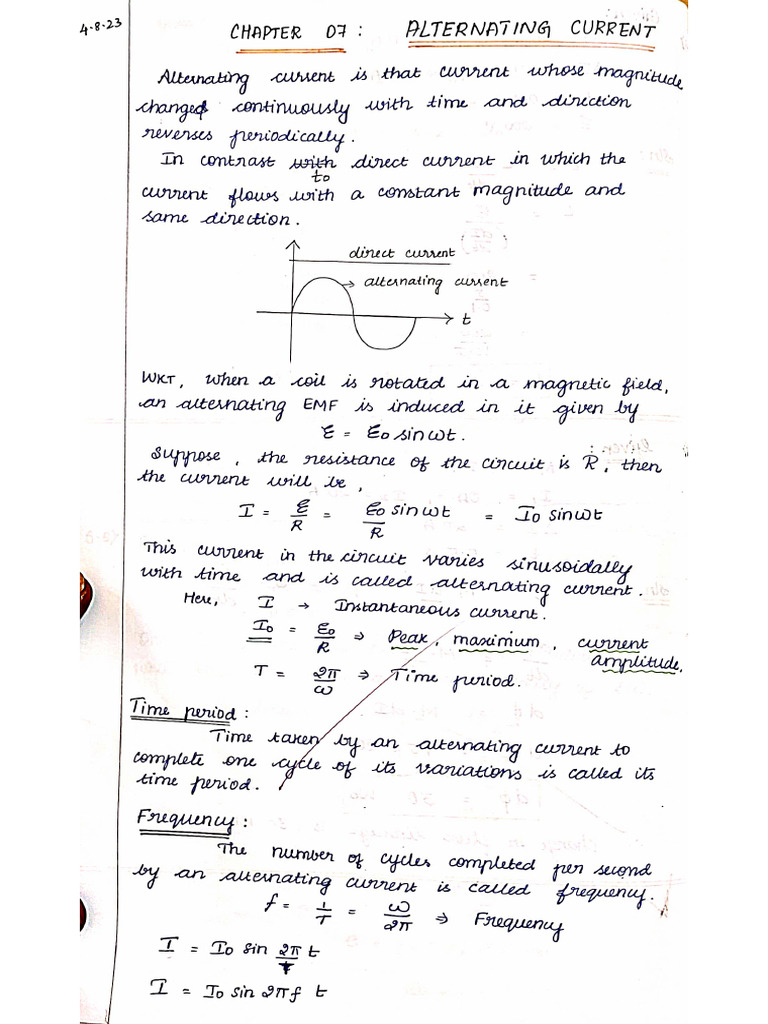 4-8-23
CHAPTER 07 : ALTERNATING CURRENT
Alternating current is that current whose magnitude
changes continuously with time and direction
reverses periodically.
In contrast with direct current in which the
to
current flows with a constant magnitude and
same direction.
direct current
alternating current
t
WKT, when a coil is rotated in a magnetic field,
an alternating EMF is induced in it given by
Ɛ = Ɛ0 sin ωt.
Suppose, the resistance of the circuit is R, then
the current will be,
I = Ɛ/R = Ɛ0 sin ωt/R = I0 sin ωt
This current in the circuit varies sinusoidally
with time and is called alternating current.
Here, I → Instantaneous current.
I0 = Ɛ0/R ⇒ Peak, maximum, current
amplitude.
T = 2π/ω ⇒ Time period.
Time period :
Time taken by an alternating current to
complete one cycle of its variations is called its
time period.
Frequency :
The number of cycles completed per second
by an alternating current is called frequency.
f = 1/T = ω/2π ⇒ Frequency
I = I0 sin 2π/T t
I = I0 sin 2πf t